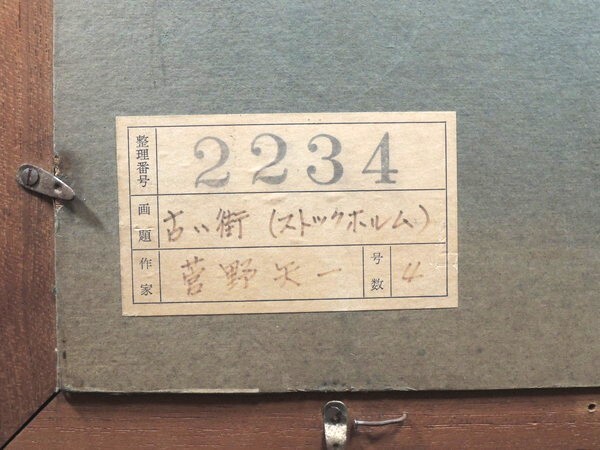 整理番号 2234
画題 古い街 (ストックホルム)
作家 菅野矢一 号数 4